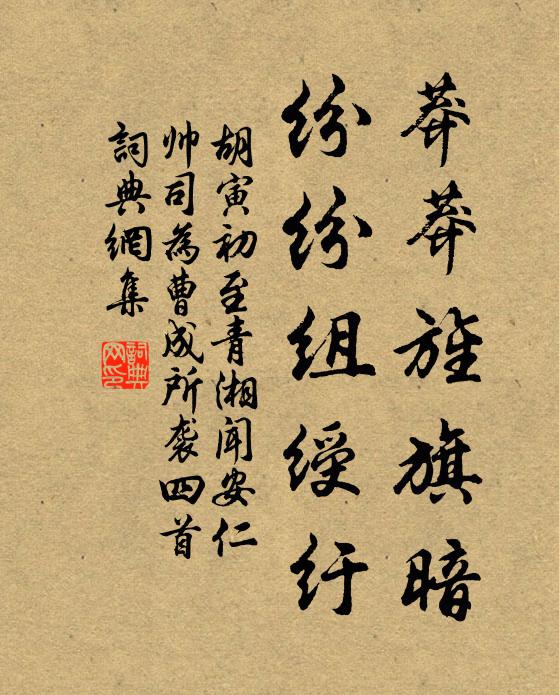 莽莽旌旗暗
纷纷组绶纡
胡寅初至青湘闻安仁
帅司為曹成所袭四首
詞典網集
詞典
网印